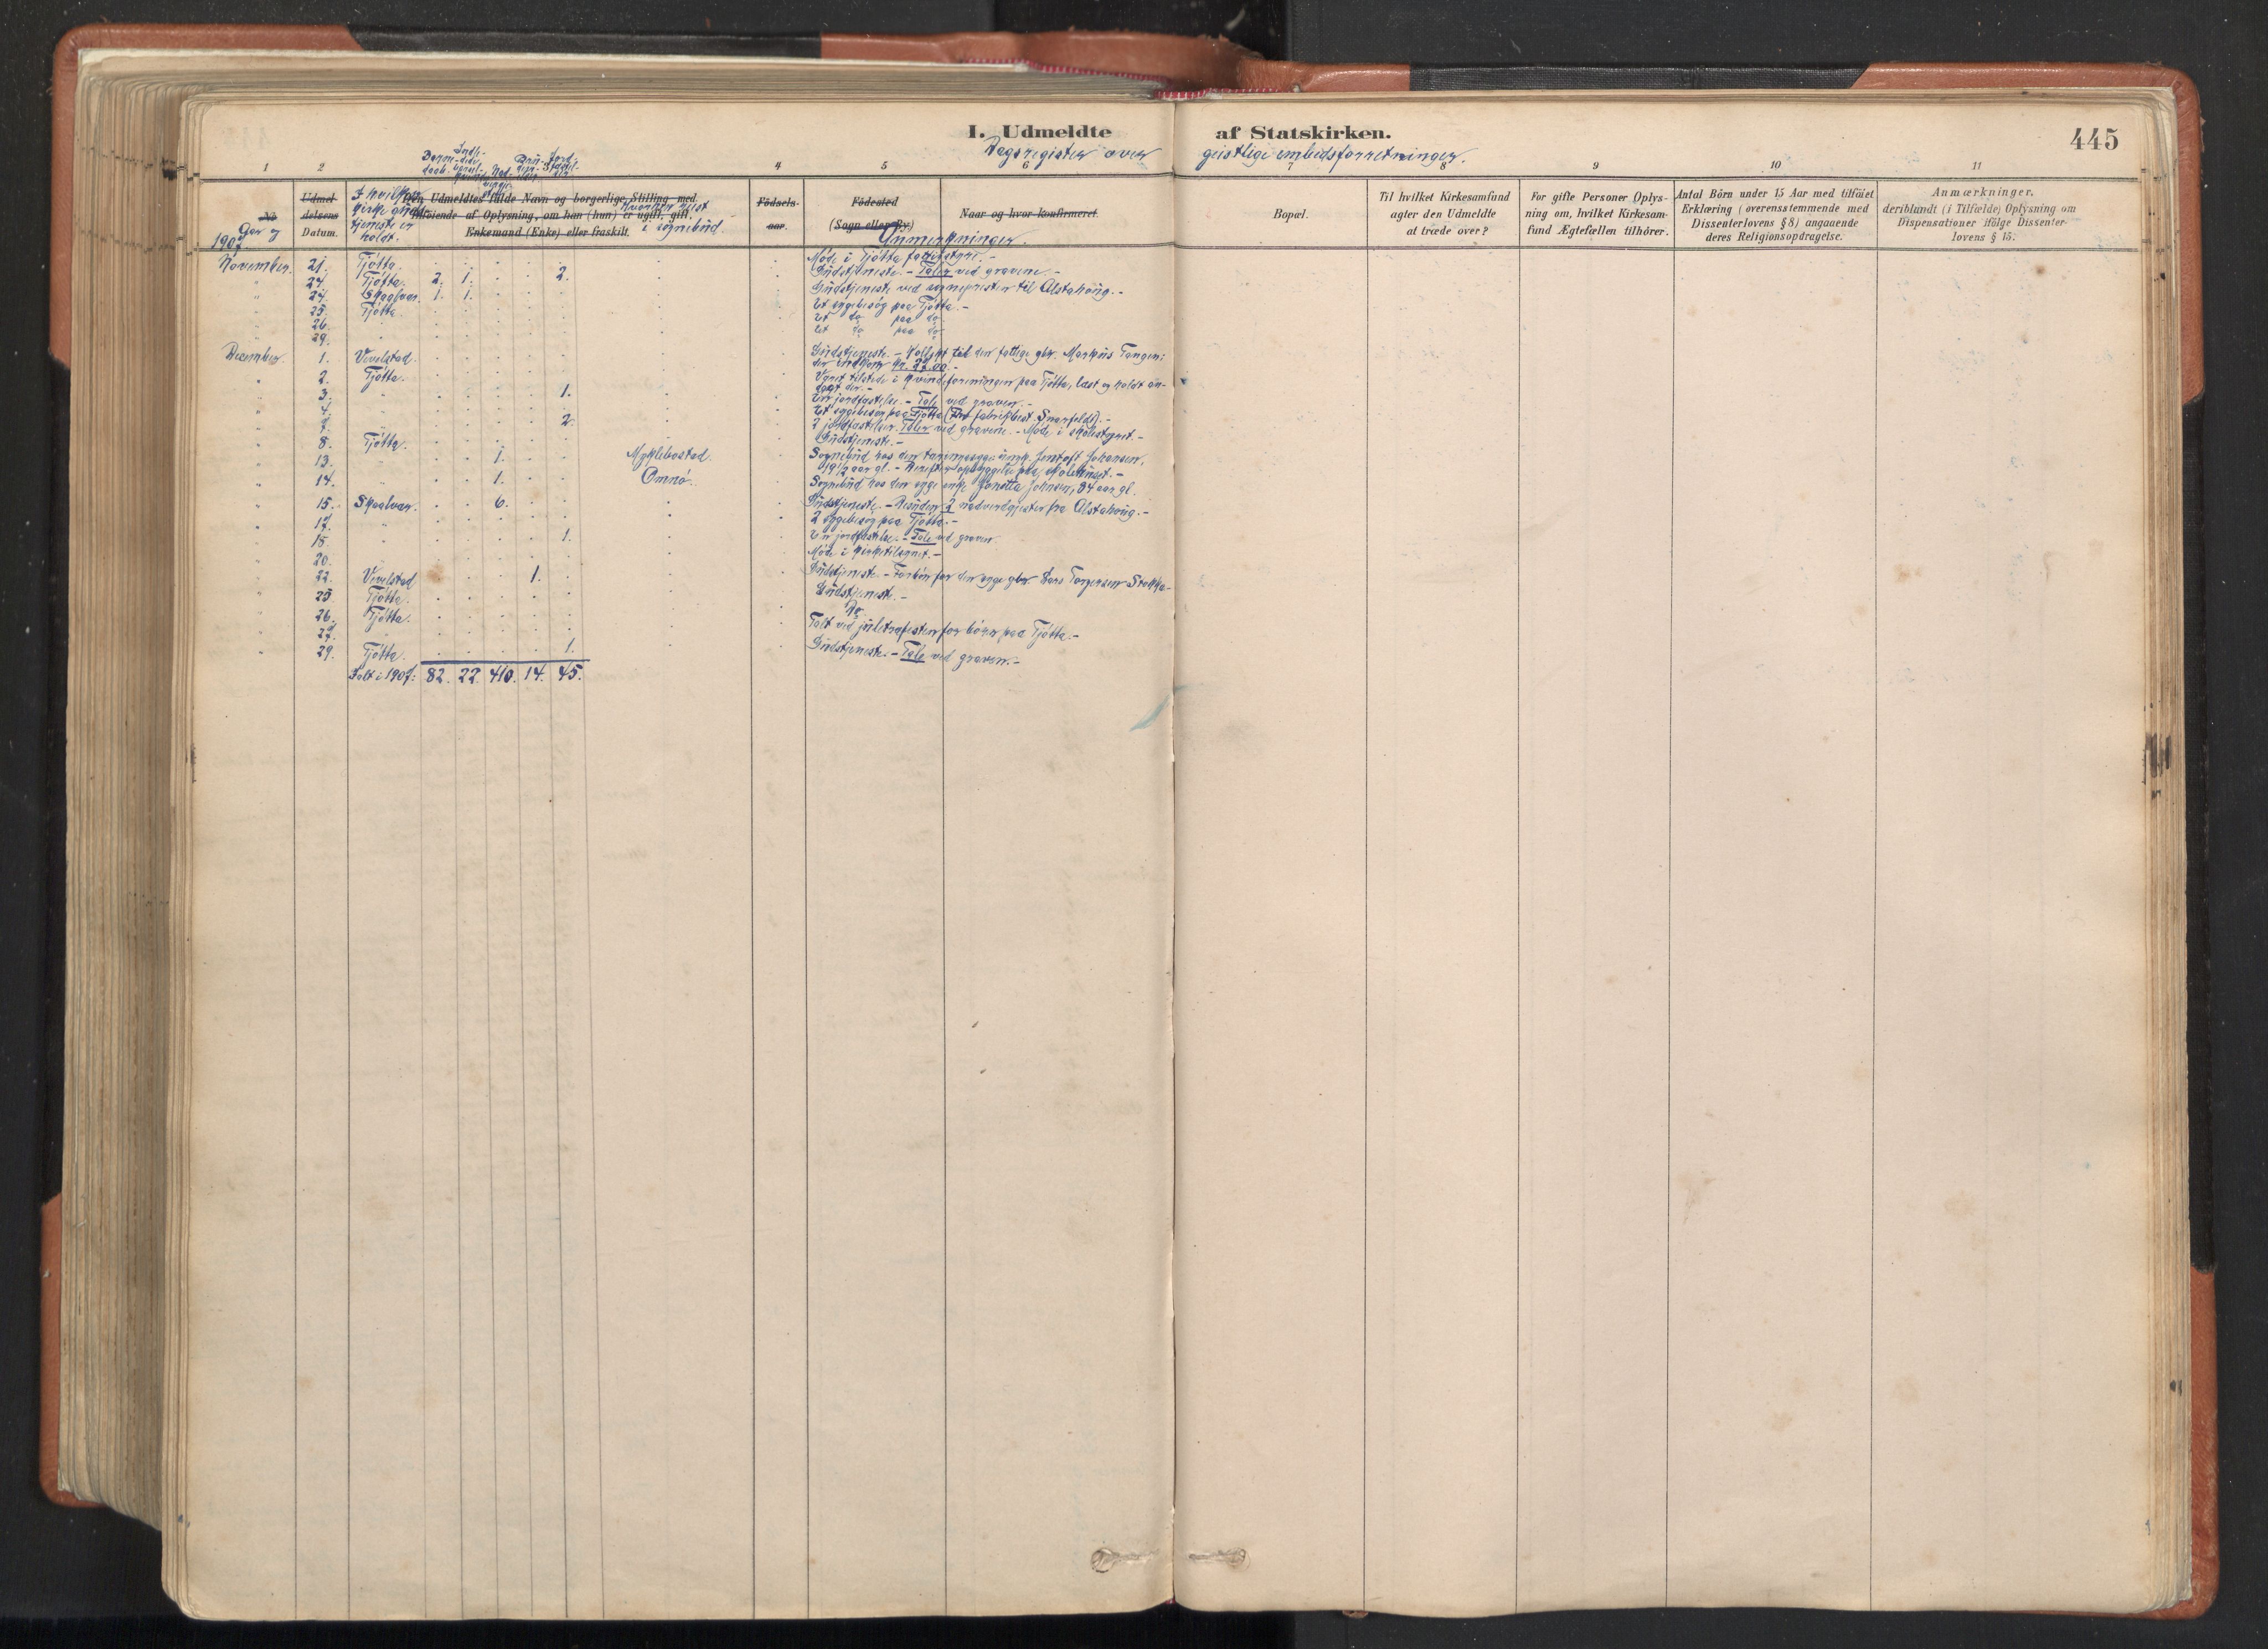 I. Udmeldte af Statskirken. 445
Dagsregister over geistlige embedsforretninger.
1 2 4 5 6 7 8 9 10 11
No Udmeldelsens Datum. Den Udmeldtes fulde Navn og borgerlige Stilling med
tilføiende af Oplysning, om han (hun) er ugift, gift,
Enkemand (Enke) eller fraskilt.
Fødsels-
aar.
Fødested
(Sogn eller By.)
Naar og hvor konfirmeret.
Bopæl.
Til hvilket Kirkesamfund
agter den Udmeldte
at træde over?
For gifte Personer Oplys-
ning om, hvilket Kirkesam-
fund Ægtefællen tilhører.
Antal Børn under 15 Aar med tilføiet
Erklæring (overensstemmende med
Dissenterlovens § 8) angaaende
deres Religionsopdragelse.
Anmærkninger,
deriblandt (i Tilfælde) Oplysning om
Dispensationer ifølge Dissenter-
lovens § 15.
Aar og
1907
I hvilken
kirke guds
tjeneste er
holdt.
i sognebud.
Anmerkninger.
November. 21. Tjøtta. Møde i Tjøtta forligstyre. -
" 24. Tjøtta. 2. 1. 2. Gudstjeneste. - Taler ved gravene. -
" 24. Skaalvær. 1. 1. Gudstjeneste ved sognepresten til Alstahoug. -
" 25. Tjøtta Et sygebesøg paa Tjøtta. -
" 26. Et do paa do.
" 29. Et do paa do
December. 1. Vevelstad. Gudstjeneste. - Kollekt til den fattige gbr. Markus Tangen:
der indkom kr. 27.00. -
" 2. Tjøtta. Været tilstede i kvindeforeningen paa Tjøtta, læst og holdt an-
dagt der. -
" 3. 1. En jordfæstelse. - Tale ved graven. -
" 4. Et sygebesøg paa Tjøtta
" 7. 2. 2 jordfæstelser. Taler ved gravene. - Møde i skolestyret. -
" 8. Tjøtta. Gudstjeneste. -
" 13. 1. Myklebostad. Sognebud hos den tæringssyge ungk. Jentoft Johansen,
19 1/2 aar gl. - opbyggelse paa skolehuset. -
" 14. 1. Omnø. Sognebud hos den syge enke Janetta Johnsen, 84 aar gl.
" 15. Skaalvær. 6. Gudstjeneste. - 2 nadverdgjester fra Alstahoug. -
" 17. 2 sygebesøg paa Tjøtta. -
" 18. 1. En jordfæstelse. - Tale ved graven.
" 20. Møde i kirketilsynet. -
" 22. Vevelstad 1. Gudstjeneste. - Forbøn for den syge gbr. Lars Torgersen Stokka -
" 25 Tjøtta. Gudstjeneste. -
" 26. Tjøtta. Do
" 27. Talt ved juletræfesten for børn paa Tjøtta. -
" 29. Tjøtta. 1. Gudstjeneste. - Tale ved graven. -
Ialt i 1907: 82. 22. 410. 14. 45.